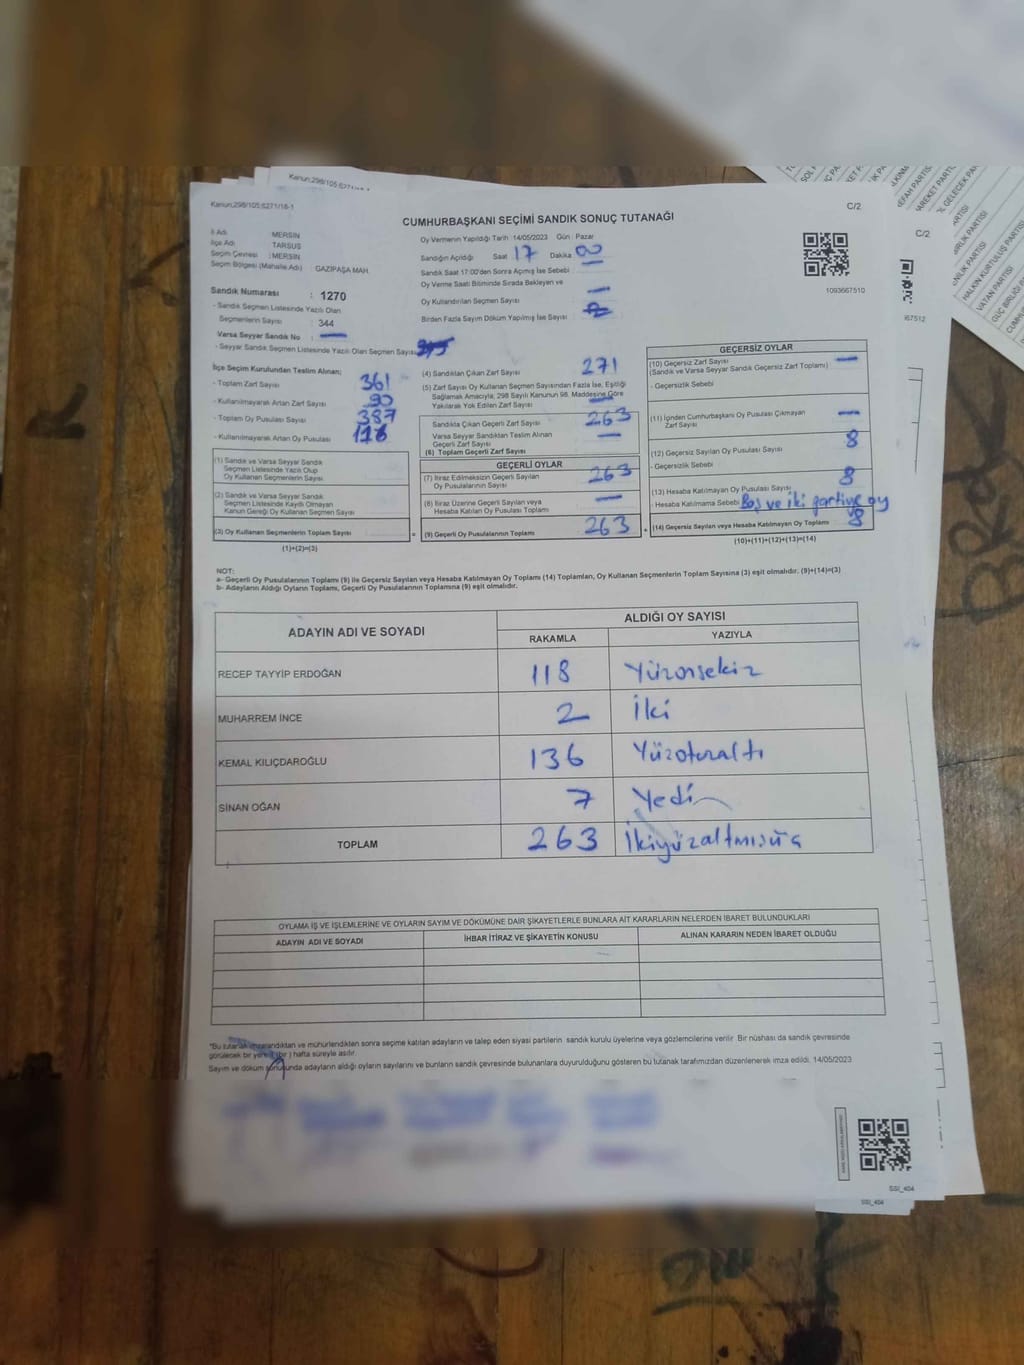 Kanun;298/105;6271/18-1
C/2
CUMHURBAŞKANI SEÇİMİ SANDIK SONUÇ TUTANAĞI
İl Adı MERSİN
İlçe Adı TARSUS
Seçim Çevresi : MERSİN
Seçim Bölgesi (Mahalle Adı) GAZİPAŞA MAH.
Sandık Numarası : 1270
- Sandık Seçmen Listesinde Yazılı Olan
Seçmenlerin Sayısı : 344
Varsa Seyyar Sandık No : —
- Seyyar Sandık Seçmen Listesinde Yazılı Olan Seçmen Sayısı
Oy Vermenin Yapıldığı Tarih :14/05/2023 Gün : Pazar
Sandığın Açıldığı Saat 17 Dakika 00
Sandık Saat 17:00'den Sonra Açılmış İse Sebebi
Oy Verme Saati Bitiminde Sırada Bekleyen ve
Oy Kullandırılan Seçmen Sayısı —
Birden Fazla Sayım Döküm Yapılmış İse Sayısı
1093667510
İlçe Seçim Kurulundan Teslim Alınan;
- Toplam Zarf Sayısı 361
- Kullanılmayarak Artan Zarf Sayısı 90
- Toplam Oy Pusulası Sayısı 387
- Kullanılmayarak Artan Oy Pusulası
(1) Sandık ve Varsa Seyyar Sandık
Seçmen Listesinde Yazılı Olup
Oy Kullanan Seçmenlerin Sayısı
(2) Sandık ve Varsa Seyyar Sandık
Seçmen Listesinde Kaydı Olmayan
Kanun Gereği Oy Kullanan Seçmen Sayısı
(3) Oy Kullanan Seçmenlerin Toplam Sayısı =
(1)+(2)=(3)
(4) Sandıktan Çıkan Zarf Sayısı 271
(5) Zarf Sayısı Oy Kullanan Seçmen Sayısından Fazla İse, Eşitliği
Sağlamak Amacıyla, 298 Sayılı Kanunun 98. Maddesine Göre
Yakılarak Yok Edilen Zarf Sayısı —
Sandıkta Çıkan Geçerli Zarf Sayısı 263
Varsa Seyyar Sandıktan Teslim Alınan
Geçerli Zarf Sayısı —
(6) Toplam Geçerli Zarf Sayısı
GEÇERLİ OYLAR
(7) İtiraz Edilmeksizin Geçerli Sayılan
Oy Pusulalarının Sayısı 263
(8) İtiraz Üzerine Geçerli Sayılan veya
Hesaba Katılan Oy Pusulası Toplamı —
(9) Geçerli Oy Pusulalarının Toplamı 263 +
GEÇERSİZ OYLAR
(10) Geçersiz Zarf Sayısı —
(Sandık ve Varsa Seyyar Sandık Geçersiz Zarf Toplamı)
- Geçersizlik Sebebi
(11) İçinden Cumhurbaşkanı Oy Pusulası Çıkmayan
Zarf Sayısı —
(12) Geçersiz Sayılan Oy Pusulası Sayısı 8
- Geçersizlik Sebebi
(13) Hesaba Katılmayan Oy Pusulası Sayısı 8
- Hesaba Katılmama Sebebi Boş ve iki partiye oy
(14) Geçersiz Sayılan veya Hesaba Katılmayan Oy Toplamı 8
(10)+(11)+(12)+(13)=(14)
NOT:
a- Geçerli Oy Pusulalarının Toplamı (9) ile Geçersiz Sayılan veya Hesaba Katılmayan Oy Toplamı (14) Toplamları, Oy Kullanan Seçmenlerin Toplam Sayısına (3) eşit olmalıdır. (9)+(14)=(3)
b- Adayların Aldığı Oyların Toplamı, Geçerli Oy Pusulalarının Toplamına (9) eşit olmalıdır.
ADAYIN ADI VE SOYADI ALDIĞI OY SAYISI
RAKAMLA YAZIYLA
RECEP TAYYİP ERDOĞAN 118 Yüzonsekiz
MUHARREM İNCE 2 İki
KEMAL KILIÇDAROĞLU 136 Yüzotuzaltı
SİNAN OĞAN 7 Yedi
TOPLAM 263 İkiyüzaltmışüç
OYLAMA İŞ VE İŞLEMLERİNE VE OYLARIN SAYIM VE DÖKÜMÜNE DAİR ŞİKAYETLERLE BUNLARA AİT KARARLARIN NELERDEN İBARET BULUNDUKLARI
ADAYIN ADI VE SOYADI İHBAR İTİRAZ VE ŞİKAYETİN KONUSU ALINAN KARARIN NEDEN İBARET OLDUĞU
*Bu tutanak imzalandıktan ve mühürlendikten sonra seçime katılan adayların ve talep eden siyasi partilerin sandık kurulu üyelerine veya gözlemcilerine verilir. Bir nüshası da sandık çevresinde
görülecek bir yere 1 (bir) hafta süreyle asılır.
Sayım ve döküm sonucunda adayların aldığı oyların sayılarını ve bunların sandık çevresinde bulunanlara duyurulduğunu gösteren bu tutanak tarafımızdan düzenlenerek imza edildi. 14/05/2023
SSI_404
SSI_404
C/2
67512
HALKIN KURTULUŞ PARTİSİ
VATAN PARTİSİ